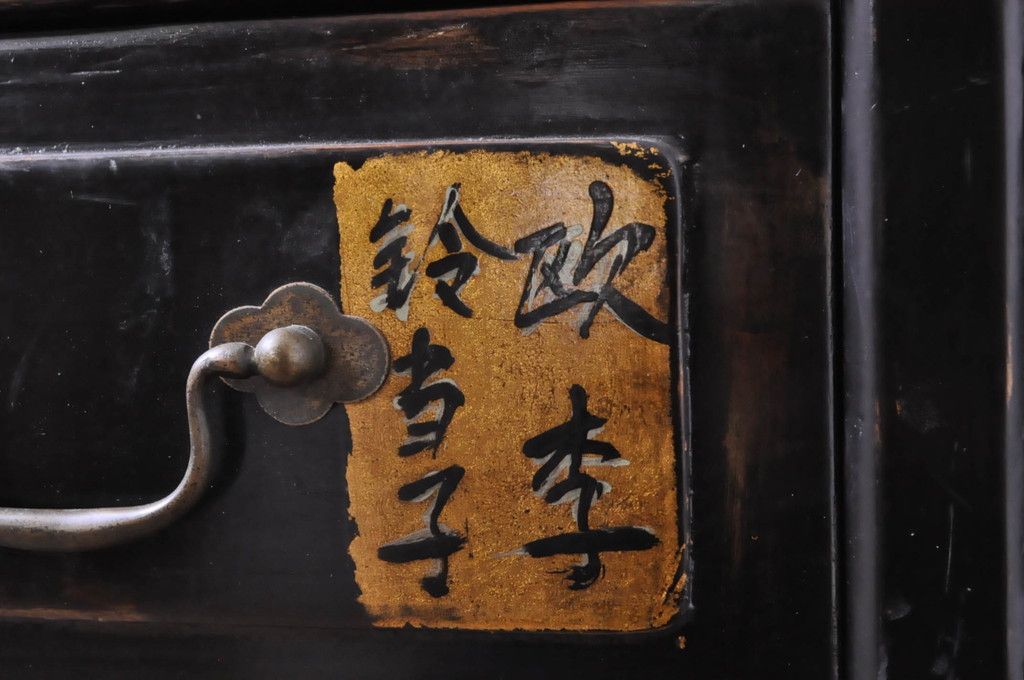 欧李
鈴当子